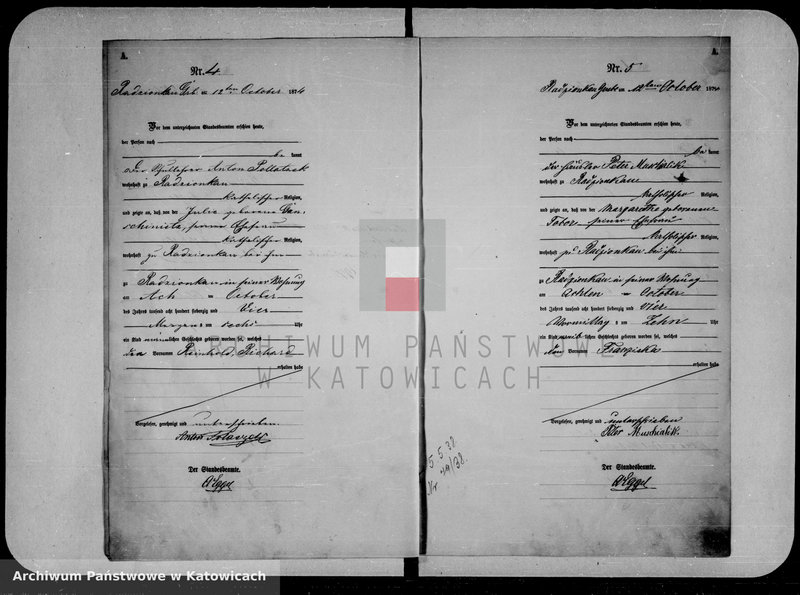 A.
Nr. 4
Radzionkau Grb. am 12ten October 1874
Vor dem unterzeichneten Standesbeamten erschien heute,
der Person nach
be kannt
Anton
wohnhaft zu Radzionkau
katholischer Religion,
und zeigte an, daß von der Julie geborene
seiner Ehefrau
katholischer Religion,
wohnhaft zu Radzionkau bei ihm
zu Radzionkau in seiner Wohnung
am Acht October
des Jahres tausend acht hundert siebenzig und Vier
Morgens um sechs Uhr
ein Kind männlichen Geschlechts geboren worden sei, welches
den Vornamen Reinhold, Richard
erhalten habe
Vorgelesen, genehmigt und unterschrieben
Anton
Der Standesbeamte.
A.
Nr. 5
Radzionkau am 12ten October 1874
Vor dem unterzeichneten Standesbeamten erschien heute,
der Person nach
be kannt
der Häusler Peter
wohnhaft zu Radzionkau
katholischer Religion,
und zeigte an, daß von der Margarethe geborenen
Tobor seiner Ehefrau
katholischer Religion,
wohnhaft zu Radzionkau bei ihm
zu Radzionkau in seiner Wohnung
am achten October
des Jahres tausend acht hundert siebenzig und Vier
Vormittag um Zehn Uhr
ein Kind weiblichen Geschlechts geboren worden sei, welches
den Vornamen Franziska
erhalten habe
Vorgelesen, genehmigt und unterschrieben
Peter Muschialik.
Der Standesbeamte.
5. 5. 38.
Nr 39/38.
ARCHIWUM PAŃSTWOWE
W KATOWICACH
Archiwum Państwowe w Katowicach